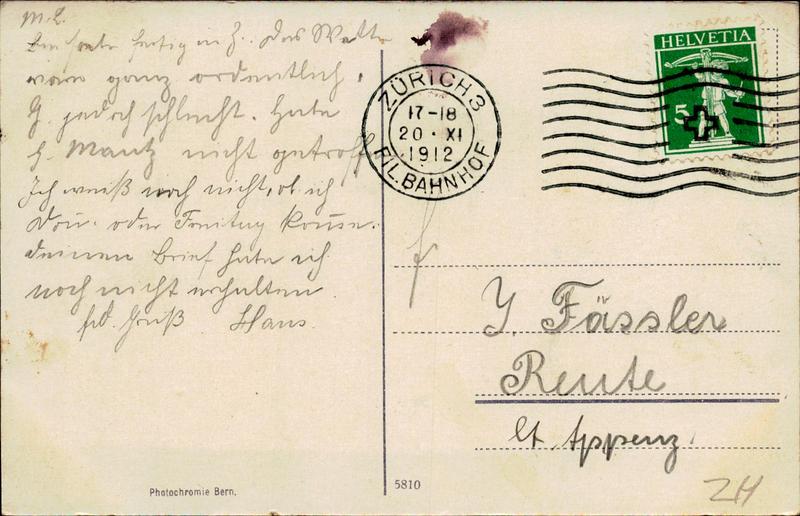 M. L.
Bin heute fertig in Z. Das Wetter
war ganz ordentlich,
G. jedoch schlecht. Habe
H. Mantz nicht getroff.
Ich weiß noch nicht, ob ich
Don. oder Freitag komme.
Deinen Brief habe ich
noch nicht erhalten
Gruß Hans.
Photochromie Bern.
5810
ZÜRICH 3
17-18
20 · XI
1912
FIL. BAHNHOF
HELVETIA
5
Fässler
Reute
Ct. Appenz.
ZH